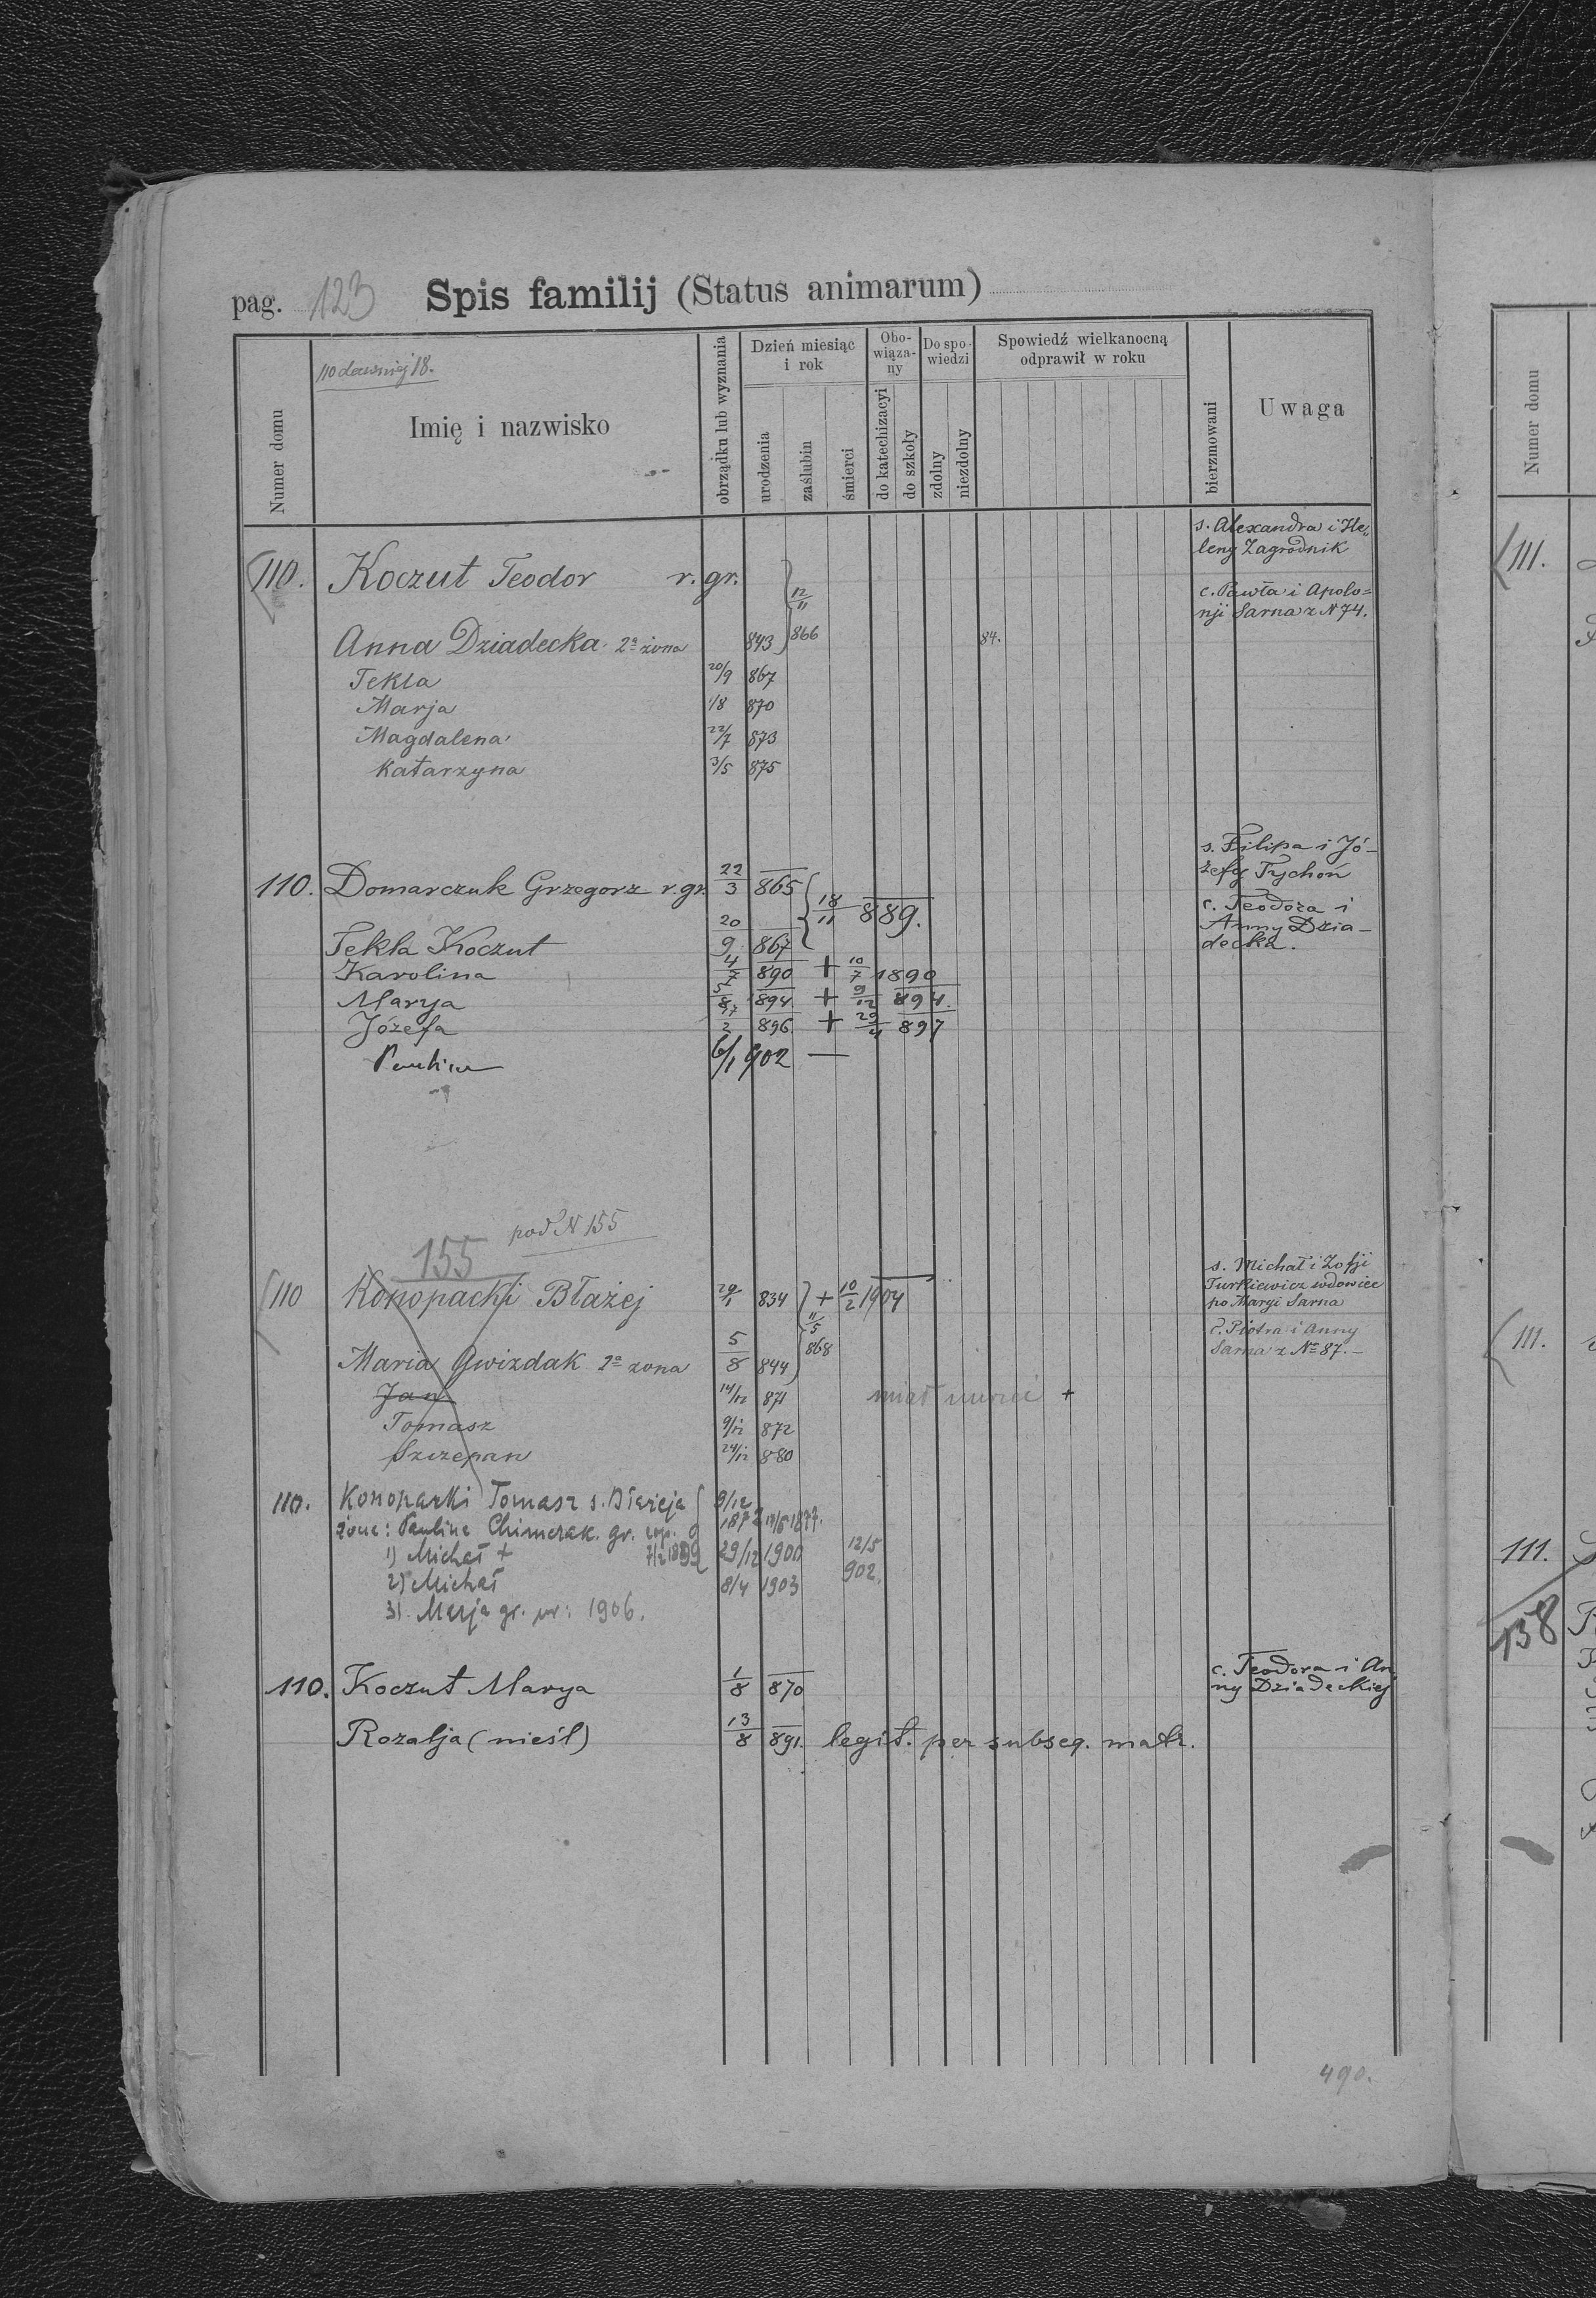 pag. 123 Spis familij (Status animarum)
110 dawniej 18.
Numer domu
Imię i nazwisko
obrządku lub wyznania
Dzień miesiąc i rok
urodzenia
zaślubin
śmierci
Obo-wiąza-ny
do katechizacyi
do szkoły
Do spo-wiedzi
zdolny
niezdolny
Spowiedź wielkanocną odprawił w roku
bierzmowani
Uwaga
s. Alexandra i He-
leny Zagrodnik
110. Koczut Teodor r. gr. 12/11
c. Pawła i Apolo=
nji Sarna z N 74.
Anna Dziadecka 2ª żona 843 866 84.
Tekla 20/9 867
Marja 1/8 870
Magdalena 22/7 873
Katarzyna 3/5 875
s. Filipa i Jó-
zefy Tychoń
110. Domarczuk Grzegorz r. gr. 22/3 865 18/11 889.
c. Teodora i
Anny Dzia-
decka.
Tekla Koczut 20/9 867
Karolina 4/7 890 + 10/7 1890
Marya 5/8 894 + 9/12 894.
Józefa 17/2 896 + 29/4 897
Paulina 6/1 902 —
pod N 155
155
s. Michał i Zofji
Turkiewicz wdowiec
po Maryi Sarna
110 Konopacki Błażej 29/1 834 + 10/2 1904
11/5 868
c. Piotra i Anny
Sarna z Nº 87. –
Maria Gwizdak 2ª żona 5/8 844
Jan 14/12 871 miał umrić +
Tomasz 9/12 872
Szczepan 24/12 880
110. Konopacki Tomasz s. Błażeja 9/12 1872
żona: Paulina Chimczak. gr. cop. 7/2 1899 13/6 1877.
1) Michał + 29/12 1900 12/5 902.
2) Michał 8/4 1903
3). Marja gr. ur: 1906.
110. Koczut Marya 1/8 870
c. Teodora i An
ny Dziadeckiej
Rozalja (nieśl) 13/8 891. legit. per subseq. matr.
490.
Numer domu
111.
111.
111.
138